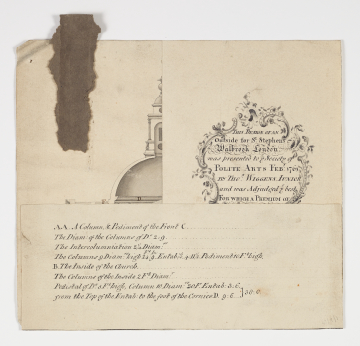 This Design of an
Outside for St Stephens
Walbrook London
was presented to ye Society of
Polite Arts Feb
by Thos Wiggens Junior
and was Adjudged ye best,
for which a Premium of
A.A. A Column & Pediment of the Front C
The Diam: of the Columns of Do 2..9
The Intercolumniation 2 Diam
The Columns 9 Diam high Entab: Pediment to high
B. The Inside of the Church
The Columns of the Inside 2 Ft Diam
Pedestal of Do 8 Ft high, Column 10 Diam 20 F. Entab:
from the Top of the Entab: to the foot of the Cornice D. 9..6